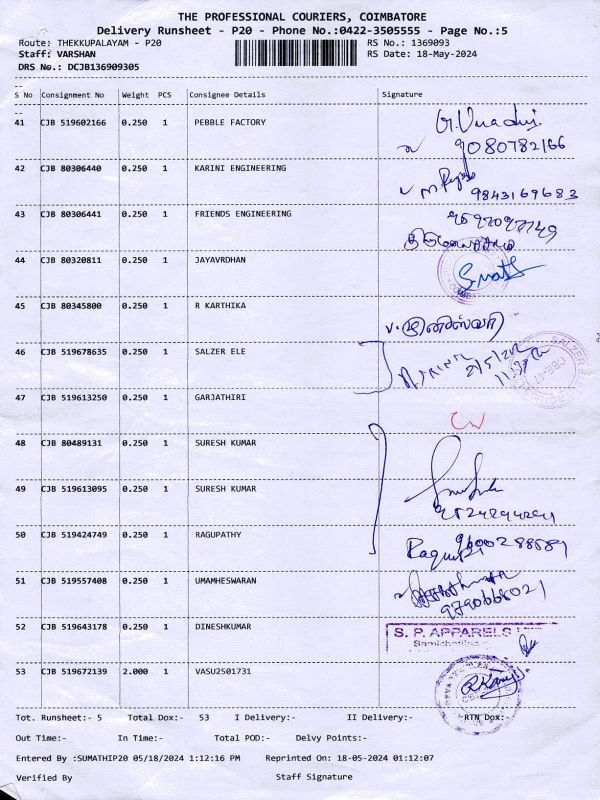 THE PROFESSIONAL COURIERS, COIMBATORE
Delivery Runsheet - P20 - Phone No.:0422-3505555 - Page No.:5
Route: THEKKUPALAYAM - P20 RS No.: 1369093
Staff: VARSHAN RS Date: 18-May-2024
DRS No.: DCJB136909305
S No Consignment No Weight PCS Consignee Details Signature
41 CJB 519602166 0.250 1 PEBBLE FACTORY
9080782166
42 CJB 80306440 0.250 1 KARINI ENGINEERING
9843169683
43 CJB 80306441 0.250 1 FRIENDS ENGINEERING
44 CJB 80320811 0.250 1 JAYAVRDHAN
45 CJB 80345800 0.250 1 R KARTHIKA
46 CJB 519678635 0.250 1 SALZER ELE
47 CJB 519613250 0.250 1 GARJATHIRI
48 CJB 80489131 0.250 1 SURESH KUMAR
49 CJB 519613095 0.250 1 SURESH KUMAR
50 CJB 519424749 0.250 1 RAGUPATHY
51 CJB 519557408 0.250 1 UMAMHESWARAN
9790668021
52 CJB 519643178 0.250 1 DINESHKUMAR
S. P. APPARELS
53 CJB 519672139 2.000 1 VASU2501731
Tot. Runsheet:- 5 Total Dox:- 53 I Delivery:- II Delivery:- RTN Dox:-
Out Time:- In Time:- Total POD:- Delvy Points:-
Entered By :SUMATHIP20 05/18/2024 1:12:16 PM Reprinted On: 18-05-2024 01:12:07
Verified By Staff Signature